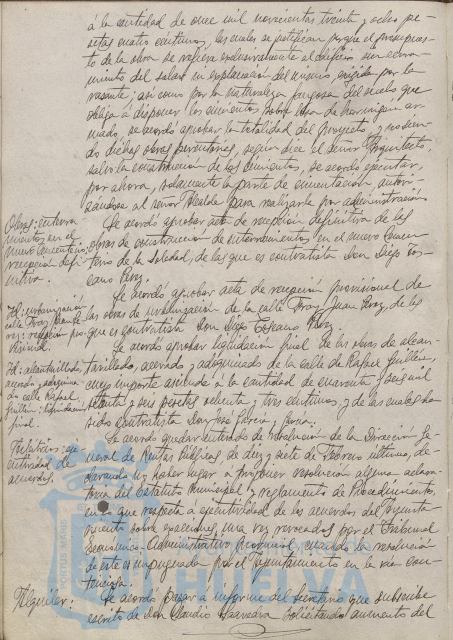 á la cantidad de once mil novecientas treinta y ocho pe-
setas cuatro céntimos, las cuales se justifican porque el presupues-
to de la obra se refiere exclusivamente al edificio sin
del solar ni explanación del mismo, exigida por la
rasante; así como por la naturaleza fangosa del suelo que
obliga a disponer los cimientos sobre losa de hormigón ar-
mado, se acordó aprobar la totalidad del proyecto y no sien-
do dichas obras perentorias, según dice el señor Arquitecto,
salvo la construcción de los cimientos, se acordó ejecutar,
por ahora, solamente la parte de cimentación, autori-
zándose al señor Alcalde para realizarla por administración
Obras: enterra
mientos en el
nuevo Cementerio;
recepción defi
nitiva.
Se acordó aprobar acta de recepción definitiva de las
obras de construcción de enterramientos en el nuevo Cemen
terio de la Soledad, de las que es contratista Don Diego Tos-
cano Pérez.
Id: urbanización
calle Fray Juan Pe
rez: recepción pro
visional.
Se acordó aprobar acta de recepción provisional de
las obras de urbanización de la calle Fray Juan Perez, de las
que es contratista Don Diego Toscano Pérez
Id: alcantarillado,
acerado y adoquina
do calle Rafael
Guillén: liquidación
final.
Se acordó aprobar liquidación final de las obras de alcan-
tarillado, acerado y adoquinado de la calle de Rafael Guillén,
cuyo importe asciende a la cantidad de cuarenta y seis mil
setenta y seis pesetas ochenta y tres céntimos, y de las cuales ha
sido contratista Don José García y García.
ejecutividad de
acuerdos.
Se acordó quedar enterado de resolución de la Dirección Ge
neral de Rentas Públicas de diez y siete de Febrero último, de-
clarando no haber lugar a proponer resolución alguna aclara
toria del Estatuto Municipal y reglamento de Procedimiento,
en lo que respecta a ejecutividad de los acuerdos del Ayunta-
miento sobre exacciones, una vez revocados por el Tribunal
Económico-Administrativo provincial, cuando la resolución
de este es impugnada por el Ayuntamiento en la vía con-
tenciosa.
Alquiler:
Se acordó pasar a informe del Secretario que suscribe
escrito de don Claudio Saavedra solicitando aumento del
PORTUS MARIS
HUELVA